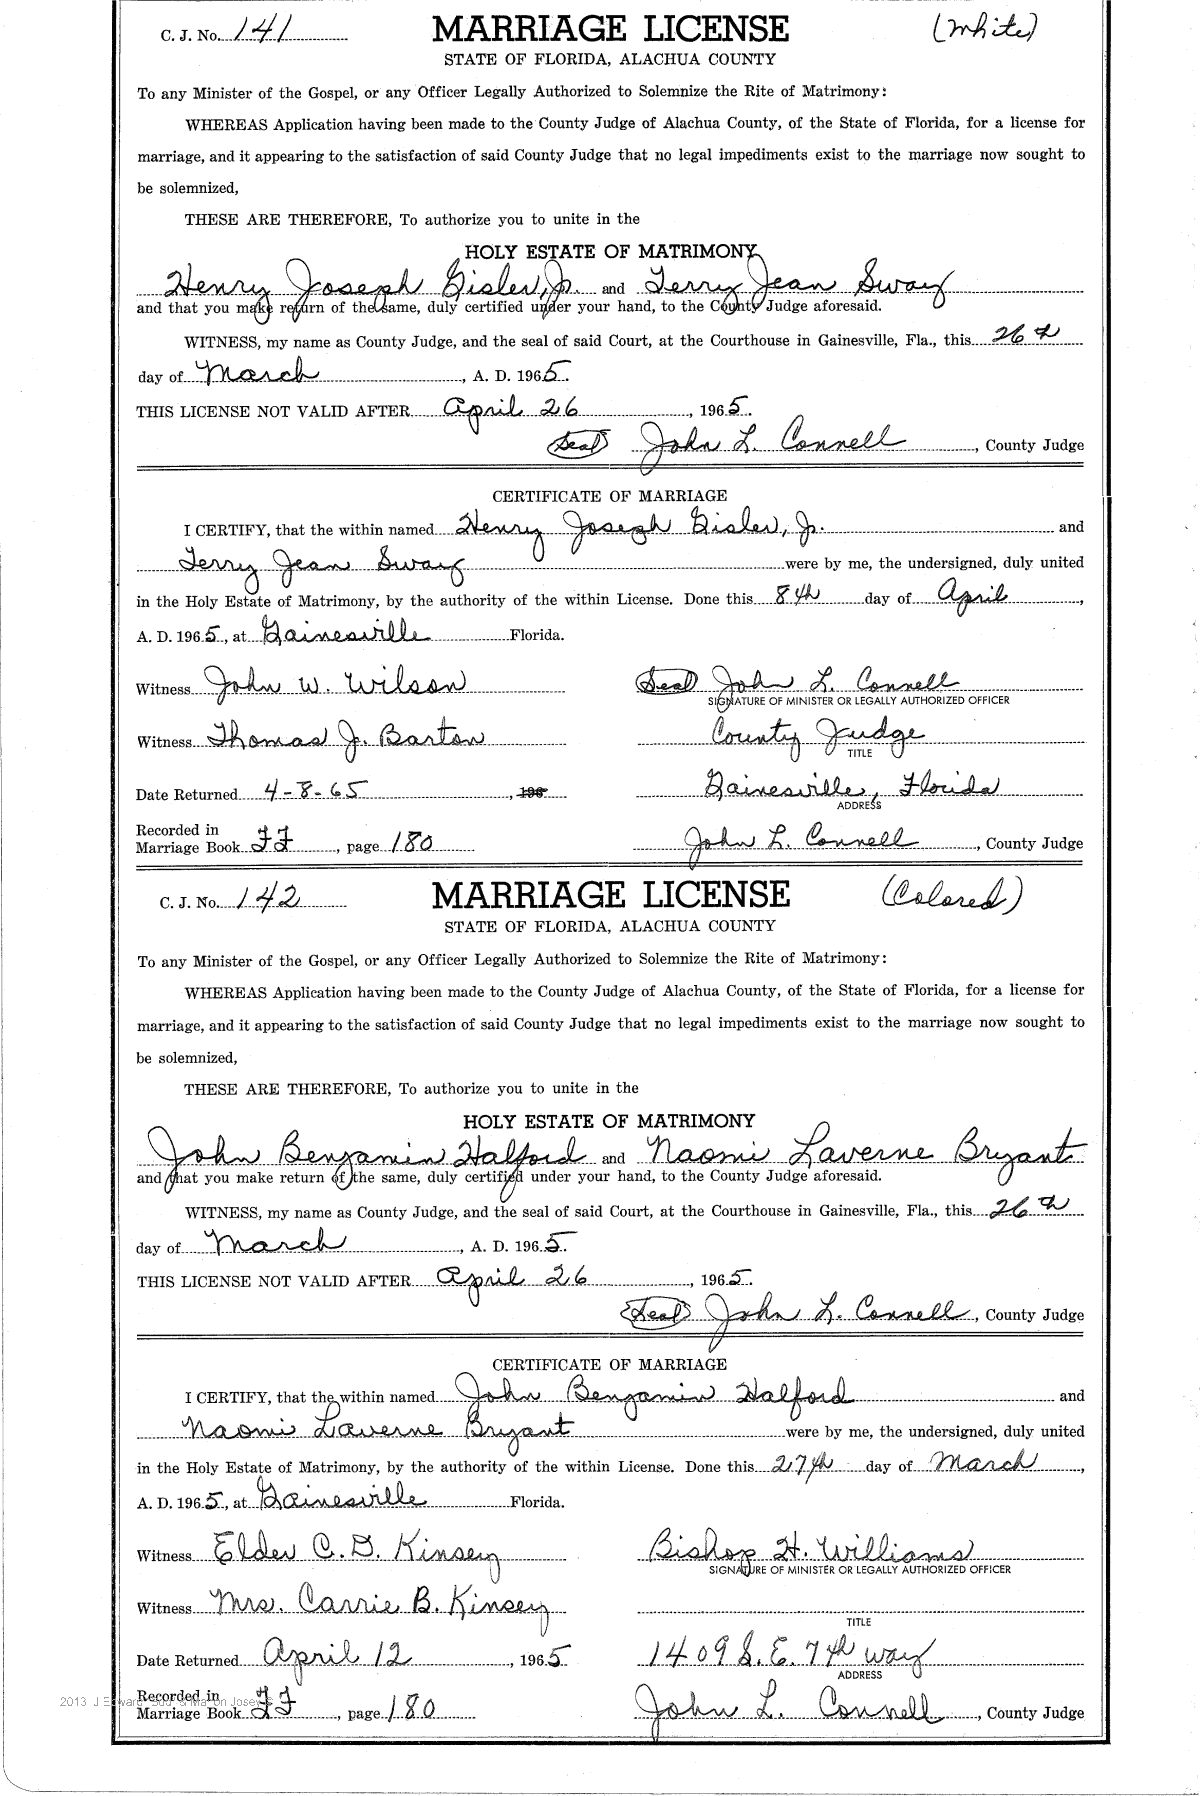 C. J. No. 141 MARRIAGE LICENSE (White)
STATE OF FLORIDA, ALACHUA COUNTY
To any Minister of the Gospel, or any Officer Legally Authorized to Solemnize the Rite of Matrimony:
WHEREAS Application having been made to the County Judge of Alachua County, of the State of Florida, for a license for
marriage, and it appearing to the satisfaction of said County Judge that no legal impediments exist to the marriage now sought to
be solemnized,
THESE ARE THEREFORE, To authorize you to unite in the
HOLY ESTATE OF MATRIMONY
Henry Joseph Gisler, Jr. and Terry Jean Sway
and that you make return of the same, duly certified under your hand, to the County Judge aforesaid.
WITNESS, my name as County Judge, and the seal of said Court, at the Courthouse in Gainesville, Fla., this 26th
day of March, A. D. 1965.
THIS LICENSE NOT VALID AFTER April 26, 1965.
(Seal) John L. Connell, County Judge
CERTIFICATE OF MARRIAGE
I CERTIFY, that the within named Henry Joseph Gisler, Jr. and
Terry Jean Sway were by me, the undersigned, duly united
in the Holy Estate of Matrimony, by the authority of the within License. Done this 8th day of April,
A. D. 1965, at Gainesville Florida.
Witness John W. Wilson (Seal) John L. Connell
SIGNATURE OF MINISTER OR LEGALLY AUTHORIZED OFFICER
Witness Thomas J. Barton County Judge
TITLE
Date Returned 4-8-65, 196 Gainesville, Florida
ADDRESS
Recorded in
Marriage Book FF, page 180 John L. Connell, County Judge
C. J. No. 142 MARRIAGE LICENSE (Colored)
STATE OF FLORIDA, ALACHUA COUNTY
To any Minister of the Gospel, or any Officer Legally Authorized to Solemnize the Rite of Matrimony:
WHEREAS Application having been made to the County Judge of Alachua County, of the State of Florida, for a license for
marriage, and it appearing to the satisfaction of said County Judge that no legal impediments exist to the marriage now sought to
be solemnized,
THESE ARE THEREFORE, To authorize you to unite in the
HOLY ESTATE OF MATRIMONY
John Benjamin Halford and Naomi Laverne Bryant
and that you make return of the same, duly certified under your hand, to the County Judge aforesaid.
WITNESS, my name as County Judge, and the seal of said Court, at the Courthouse in Gainesville, Fla., this 26th
day of March, A. D. 1965.
THIS LICENSE NOT VALID AFTER April 26, 1965.
(Seal) John L. Connell, County Judge
CERTIFICATE OF MARRIAGE
I CERTIFY, that the within named John Benjamin Halford and
Naomi Laverne Bryant were by me, the undersigned, duly united
in the Holy Estate of Matrimony, by the authority of the within License. Done this 27th day of March,
A. D. 1965, at Gainesville Florida.
Witness Elder C. D. Kinsey Bishop H. Williams
SIGNATURE OF MINISTER OR LEGALLY AUTHORIZED OFFICER
Witness Mrs. Carrie B. Kinsey
TITLE
Date Returned April 12, 1965 1409 S. E. 7th Way
ADDRESS
Recorded in
Marriage Book FF, page 180 John L. Connell, County Judge
2013 J